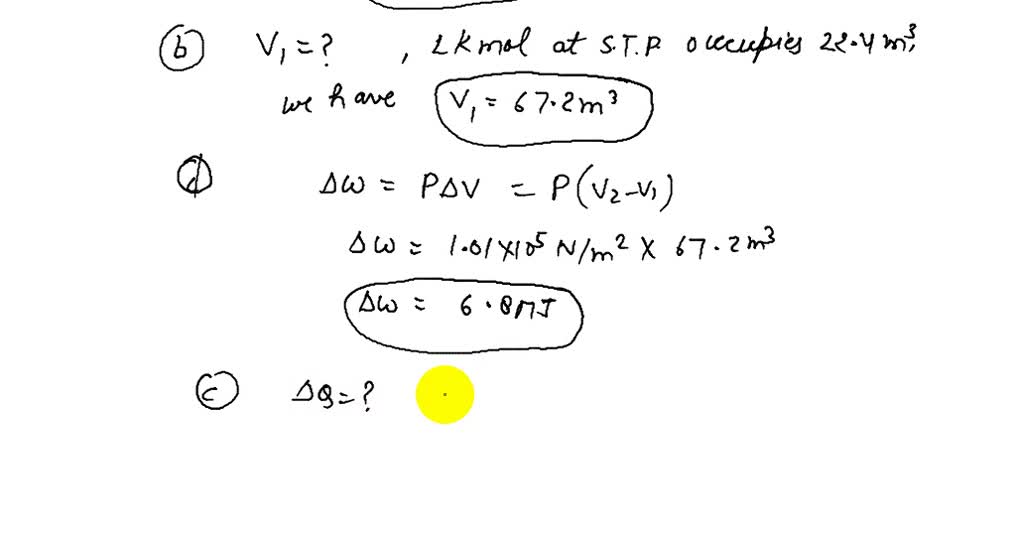 (b) V₁ = ? , 1 k mol at S.T.P. occupies 22.4 m³,
we have V₁ = 67.2 m³
(d) Δω = PΔV = P(V₂-V₁)
Δω = 1.01×10⁵ N/m² × 67.2 m³
Δω = 6.8 MJ
(c) ΔQ = ?